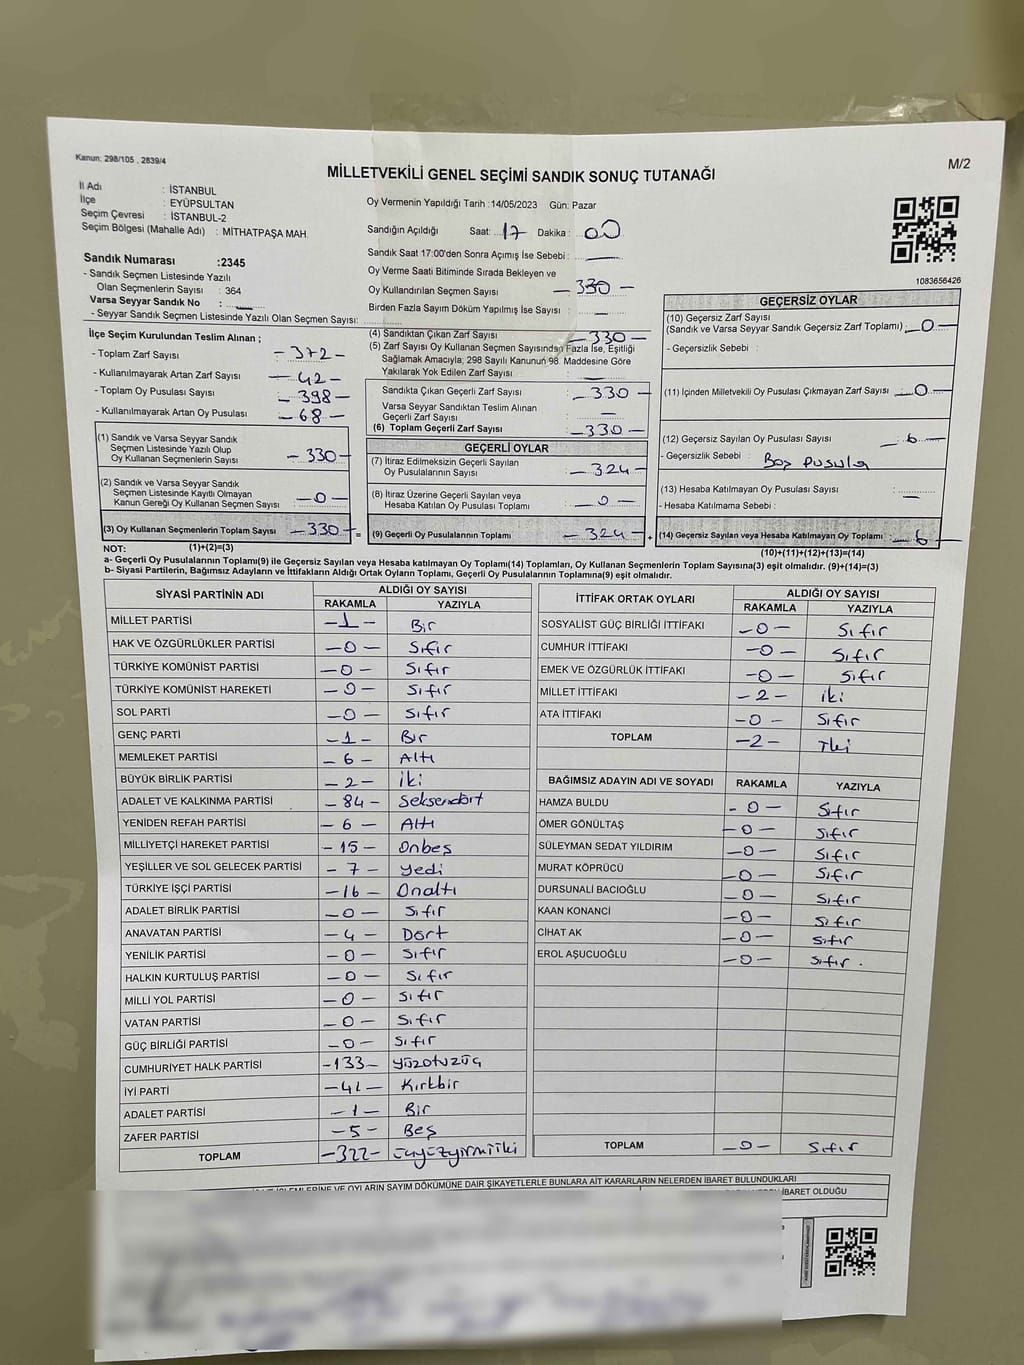 Kanun: 298/105 , 2839/4
M/2
MİLLETVEKİLİ GENEL SEÇİMİ SANDIK SONUÇ TUTANAĞI
İl Adı : İSTANBUL
İlçe : EYÜPSULTAN
Seçim Çevresi : İSTANBUL-2
Seçim Bölgesi (Mahalle Adı) : MİTHATPAŞA MAH.
Oy Vermenin Yapıldığı Tarih :14/05/2023 Gün: Pazar
Sandığın Açıldığı Saat: 17 Dakika : 00
Sandık Saat 17:00'den Sonra Açılmış İse Sebebi : —
Oy Verme Saati Bitiminde Sırada Bekleyen ve
Oy Kullandırılan Seçmen Sayısı — 330 —
Birden Fazla Sayım Döküm Yapılmış İse Sayısı : —
1083656426
Sandık Numarası :2345
- Sandık Seçmen Listesinde Yazılı
Olan Seçmenlerin Sayısı : 364
Varsa Seyyar Sandık No : —
- Seyyar Sandık Listesinde Yazılı Olan Seçmen Sayısı:
İlçe Seçim Kurulundan Teslim Alınan ;
- Toplam Zarf Sayısı - 372 -
- Kullanılmayarak Artan Zarf Sayısı - 42 -
- Toplam Oy Pusulası Sayısı - 398 -
- Kullanılmayarak Artan Oy Pusulası - 68 -
(1) Sandık ve Varsa Seyyar Sandık
Seçmen Listesinde Yazılı Olup
Oy Kullanan Seçmenlerin Sayısı - 330 -
(2) Sandık ve Varsa Seyyar Sandık
Seçmen Listesinde Kayıtlı Olmayan
Kanun Gereği Oy Kullanan Seçmen Sayısı - 0 -
(3) Oy Kullanan Seçmenlerin Toplam Sayısı - 330 -
(1)+(2)=(3)
(4) Sandıktan Çıkan Zarf Sayısı - 330 -
(5) Zarf Sayısı Oy Kullanan Seçmen Sayısından Fazla İse, Eşitliği
Sağlamak Amacıyla; 298 Sayılı Kanunun 98. Maddesine Göre
Yakılarak Yok Edilen Zarf Sayısı —
Sandıkta Çıkan Geçerli Zarf Sayısı - 330 -
Varsa Seyyar Sandıktan Teslim Alınan
Geçerli Zarf Sayısı —
(6) Toplam Geçerli Zarf Sayısı - 330 -
GEÇERLİ OYLAR
(7) İtiraz Edilmeksizin Geçerli Sayılan
Oy Pusulalarının Sayısı - 324 -
(8) İtiraz Üzerine Geçerli Sayılan veya
Hesaba Katılan Oy Pusulası Toplamı - 0 -
= (9) Geçerli Oy Pusulalarının Toplamı - 324 -
GEÇERSİZ OYLAR
(10) Geçersiz Zarf Sayısı
(Sandık ve Varsa Seyyar Sandık Geçersiz Zarf Toplamı) - 0 -
- Geçersizlik Sebebi :
(11) İçinden Milletvekili Oy Pusulası Çıkmayan Zarf Sayısı - 0 -
(12) Geçersiz Sayılan Oy Pusulası Sayısı - 6 -
- Geçersizlik Sebebi : Boş Pusula
(13) Hesaba Katılmayan Oy Pusulası Sayısı : —
- Hesaba Katılmama Sebebi :
+ (14) Geçersiz Sayılan veya Hesaba Katılmayan Oy Toplamı : - 6 -
(10)+(11)+(12)+(13)=(14)
NOT:
a- Geçerli Oy Pusulalarının Toplamı(9) ile Geçersiz Sayılan veya Hesaba katılmayan Oy Toplamı(14) Toplamları, Oy Kullanan Seçmenlerin Toplam Sayısına(3) eşit olmalıdır. (9)+(14)=(3)
b- Siyasi Partilerin, Bağımsız Adayların ve İttifakların Aldığı Ortak Oyların Toplamı, Geçerli Oy Pusulalarının Toplamına(9) eşit olmalıdır.
SİYASİ PARTİNİN ADI ALDIĞI OY SAYISI
RAKAMLA YAZIYLA
MİLLET PARTİSİ -1- Bir
HAK VE ÖZGÜRLÜKLER PARTİSİ -0- Sıfır
TÜRKİYE KOMÜNİST PARTİSİ -0- Sıfır
TÜRKİYE KOMÜNİST HAREKETİ -0- Sıfır
SOL PARTİ -0- Sıfır
GENÇ PARTİ -1- Bir
MEMLEKET PARTİSİ -6- Altı
BÜYÜK BİRLİK PARTİSİ -2- iki
ADALET VE KALKINMA PARTİSİ -84- Seksendört
YENİDEN REFAH PARTİSİ -6- Altı
MİLLİYETÇİ HAREKET PARTİSİ -15- Onbeş
YEŞİLLER VE SOL GELECEK PARTİSİ -7- Yedi
TÜRKİYE İŞÇİ PARTİSİ -16- Onaltı
ADALET BİRLİK PARTİSİ -0- Sıfır
ANAVATAN PARTİSİ -4- Dört
YENİLİK PARTİSİ -0- Sıfır
HALKIN KURTULUŞ PARTİSİ -0- Sıfır
MİLLİ YOL PARTİSİ -0- Sıfır
VATAN PARTİSİ -0- Sıfır
GÜÇ BİRLİĞİ PARTİSİ -0- Sıfır
CUMHURİYET HALK PARTİSİ -133- yüzotuzüç
İYİ PARTİ -41- Kırkbir
ADALET PARTİSİ -1- Bir
ZAFER PARTİSİ -5- Beş
TOPLAM -322- üçyüzyirmiiki
İTTİFAK ORTAK OYLARI ALDIĞI OY SAYISI
RAKAMLA YAZIYLA
SOSYALİST GÜÇ BİRLİĞİ İTTİFAKI -0- Sıfır
CUMHUR İTTİFAKI -0- Sıfır
EMEK VE ÖZGÜRLÜK İTTİFAKI -0- Sıfır
MİLLET İTTİFAKI -2- iki
ATA İTTİFAKI -0- Sıfır
TOPLAM -2- İki
BAĞIMSIZ ADAYIN ADI VE SOYADI RAKAMLA YAZIYLA
HAMZA BULDU -0- Sıfır
ÖMER GÖNÜLTAŞ -0- Sıfır
SÜLEYMAN SEDAT YILDIRIM -0- Sıfır
MURAT KÖPRÜCÜ -0- Sıfır
DURSUNALİ BACIOĞLU -0- Sıfır
KAAN KONANCİ -0- Sıfır
CİHAT AK -0- Sıfır
EROL AŞUCUOĞLU -0- Sıfır .
TOPLAM -0- Sıfır
İŞLEMLERİNE VE OYLARIN SAYIM DÖKÜMÜNE DAİR ŞİKAYETLERLE BUNLARA AİT KARARLARIN NELERDEN İBARET BULUNDUKLARI
İBARET OLDUĞU